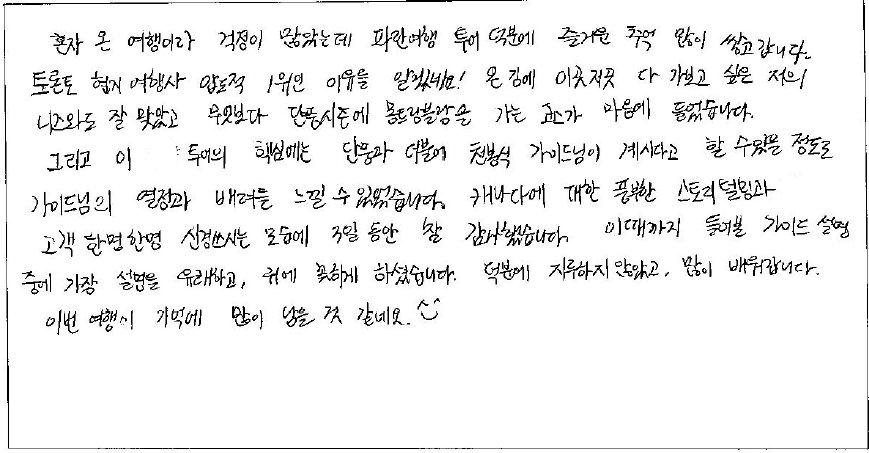 혼자 온 여행이라 걱정이 많았는데 파란여행 투어 덕분에 즐거운 추억 많이 쌓고 갑니다.
토론토 현지 여행사 압도적 1위인 이유를 알겠네요! 온 김에 이곳저곳 다 가보고 싶은 저의
니즈와도 잘 맞았고 무엇보다 단풍시즌에 몽트랑블랑을 가는 코스가 마음에 들었습니다.
그리고 이 투어의 핵심에는 단풍과 더불어 천봉석 가이드님이 계시다고 할 수 있을 정도로
가이드님의 열정과 배려를 느낄 수 있었습니다. 캐나다에 대한 풍부한 스토리텔링과
고객 한명한명 신경쓰시는 모습에 3일 동안 참 감사했습니다. 이때까지 들어본 가이드 설명
중에 가장 설명을 유쾌하고, 귀에 꽂히게 하셨습니다. 덕분에 지루하지 않았고, 많이 배워갑니다.
이번 여행이 기억에 많이 남을 것 같네요.